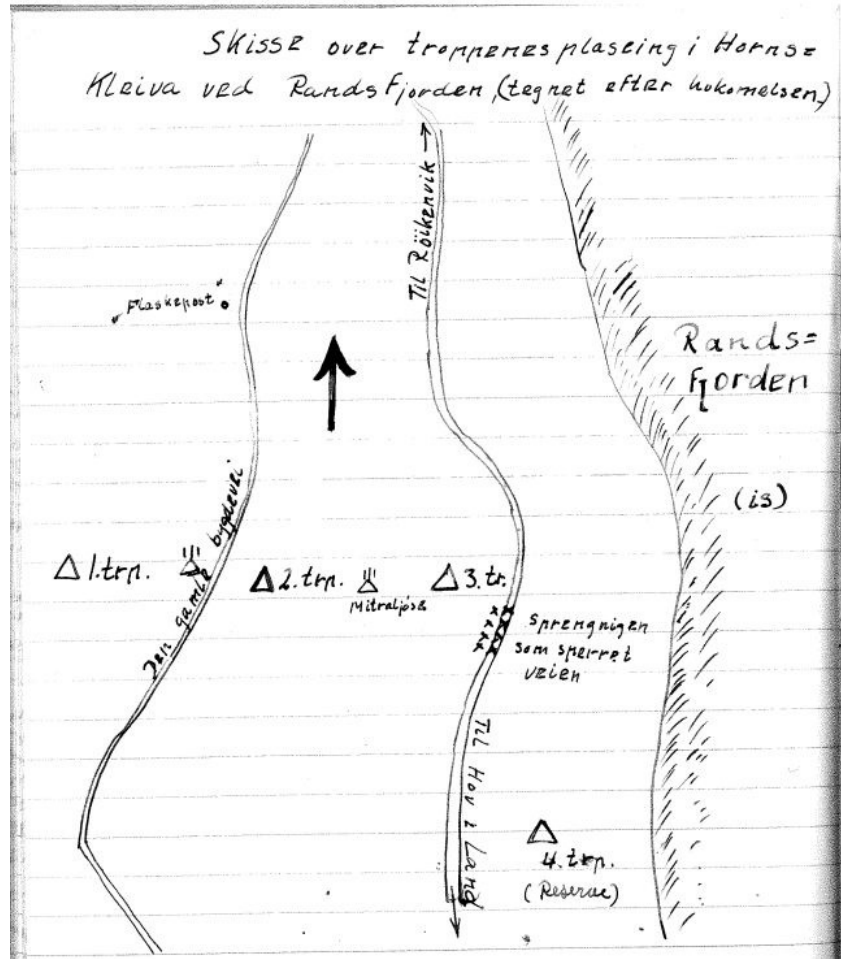 Skisse over troppenes plaseing i Horns=
Kleiva ved Randsfjorden, (tegnet efter hukomelsen)
Til Röikenvik →
Flaskepost
Rands=
fjorden
(is)
Den gamle bygdevei
1. trp.
2. trp.
Mitraljöse
3. tr.
sprengnigen
som sperret
veien
Til Hov i Land
4. trp.
(Reserve)